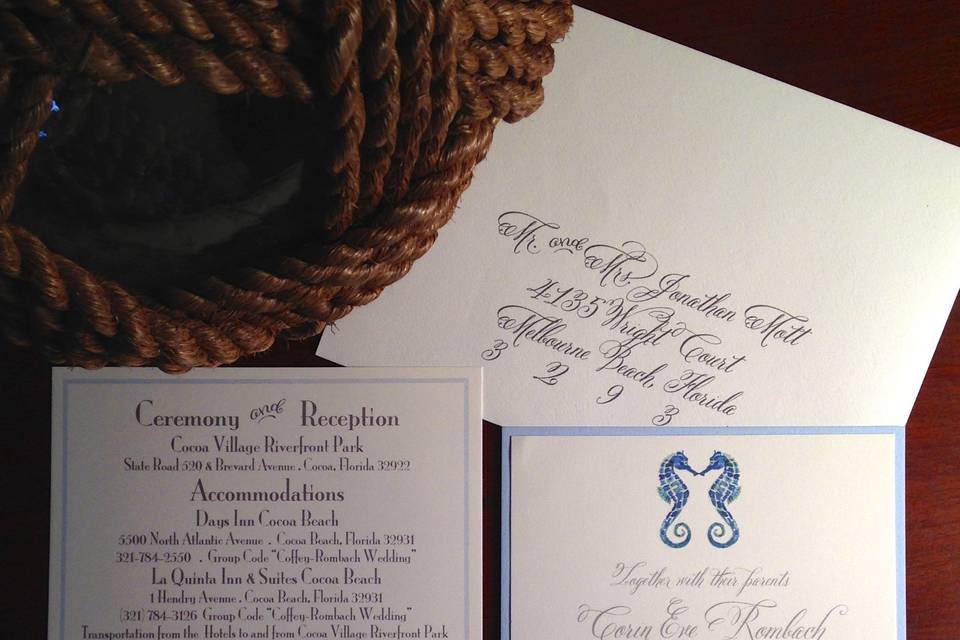 Mr. and Mrs. Jonathan Mott
4135 Wright Court
Melbourne Beach, Florida
3 2 9 3
Ceremony and Reception
Cocoa Village Riverfront Park
State Road 520 & Brevard Avenue . Cocoa, Florida 32922
Accommodations
Days Inn Cocoa Beach
5500 North Atlantic Avenue . Cocoa Beach, Florida 32931
321-784-2550 . Group Code "Coffey-Rombach Wedding"
La Quinta Inn & Suites Cocoa Beach
1 Hendry Avenue . Cocoa Beach, Florida 32931
(321) 784-3126 Group Code "Coffey-Rombach Wedding"
Transportation from the Hotels to and from Cocoa Village Riverfront Park
Together with their parents
Corin Eve Rombach